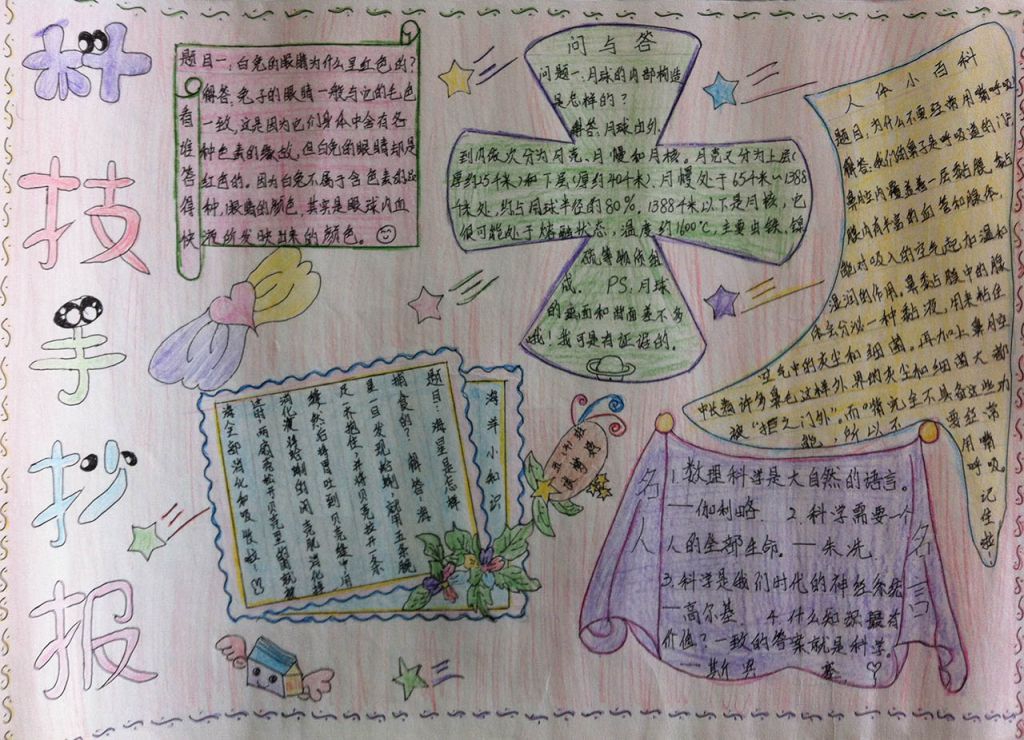 科技手抄报
题目一:白兔的眼睛为什么是红色的?
解答:兔子的眼睛一般与它的毛色
看一致,这是因为它们身体中含有各
谁种色素的缘故,但白兔的眼睛却是
答红色的。因为白兔不属于含色素的品
得种,眼睛的颜色,其实是眼球内血
快液所反映出来的颜色。
问与答
问题一:月球的内部构造
是怎样的?
解答:月球由外
到内依次分为月壳、月幔和月核。月壳又分为上层(
厚约25千米)和下层(厚约40千米)、月幔处于65千米~1388
千米处,约占月球半径的80%。1388千米以下是月核,它
很可能处于熔融状态,温度约1600℃,主要由铁、镍
硫等物质组
成。 PS:月球
的正面和背面差不多
哦!我可是有证据的。
人体小百科
题目:为什么不要经常用嘴呼吸
解答:我们的鼻子是呼吸道的门户
鼻腔内覆盖着一层黏膜,黏
膜内有丰富的血管和腺体,
能对吸入的空气起加温和
湿润的作用。鼻黏膜中的腺
体会分泌一种黏液,用来粘住
空气中的灰尘和细菌。再加上鼻腔
中长着许多鼻毛这样外界的灰尘和细菌大都
被“拒之门外”。而嘴完全不具备这些功
能,所以不
要经常
用嘴
呼吸
记住啦!
海洋小知识
题目:海星是怎样
捕食的? 解答:海
星一旦发现蛤蜊,就用五条腕
足齐抱住,并将贝壳拉开一条
缝,然后将胃吐到贝壳缝中用
消化液将蛤蜊的闭壳肌消化掉
这时两扇壳松开贝壳里的肉就被
海全部消化和吸收啦!
名人名言
1.数理科学是大自然的语言。
——伽利略. 2.科学需要一个
人的全部生命。——朱冼.
3.科学是我们时代的神经系统
——高尔基 4.什么知识最有
价值?一致的答案就是科学。
——斯宾塞.